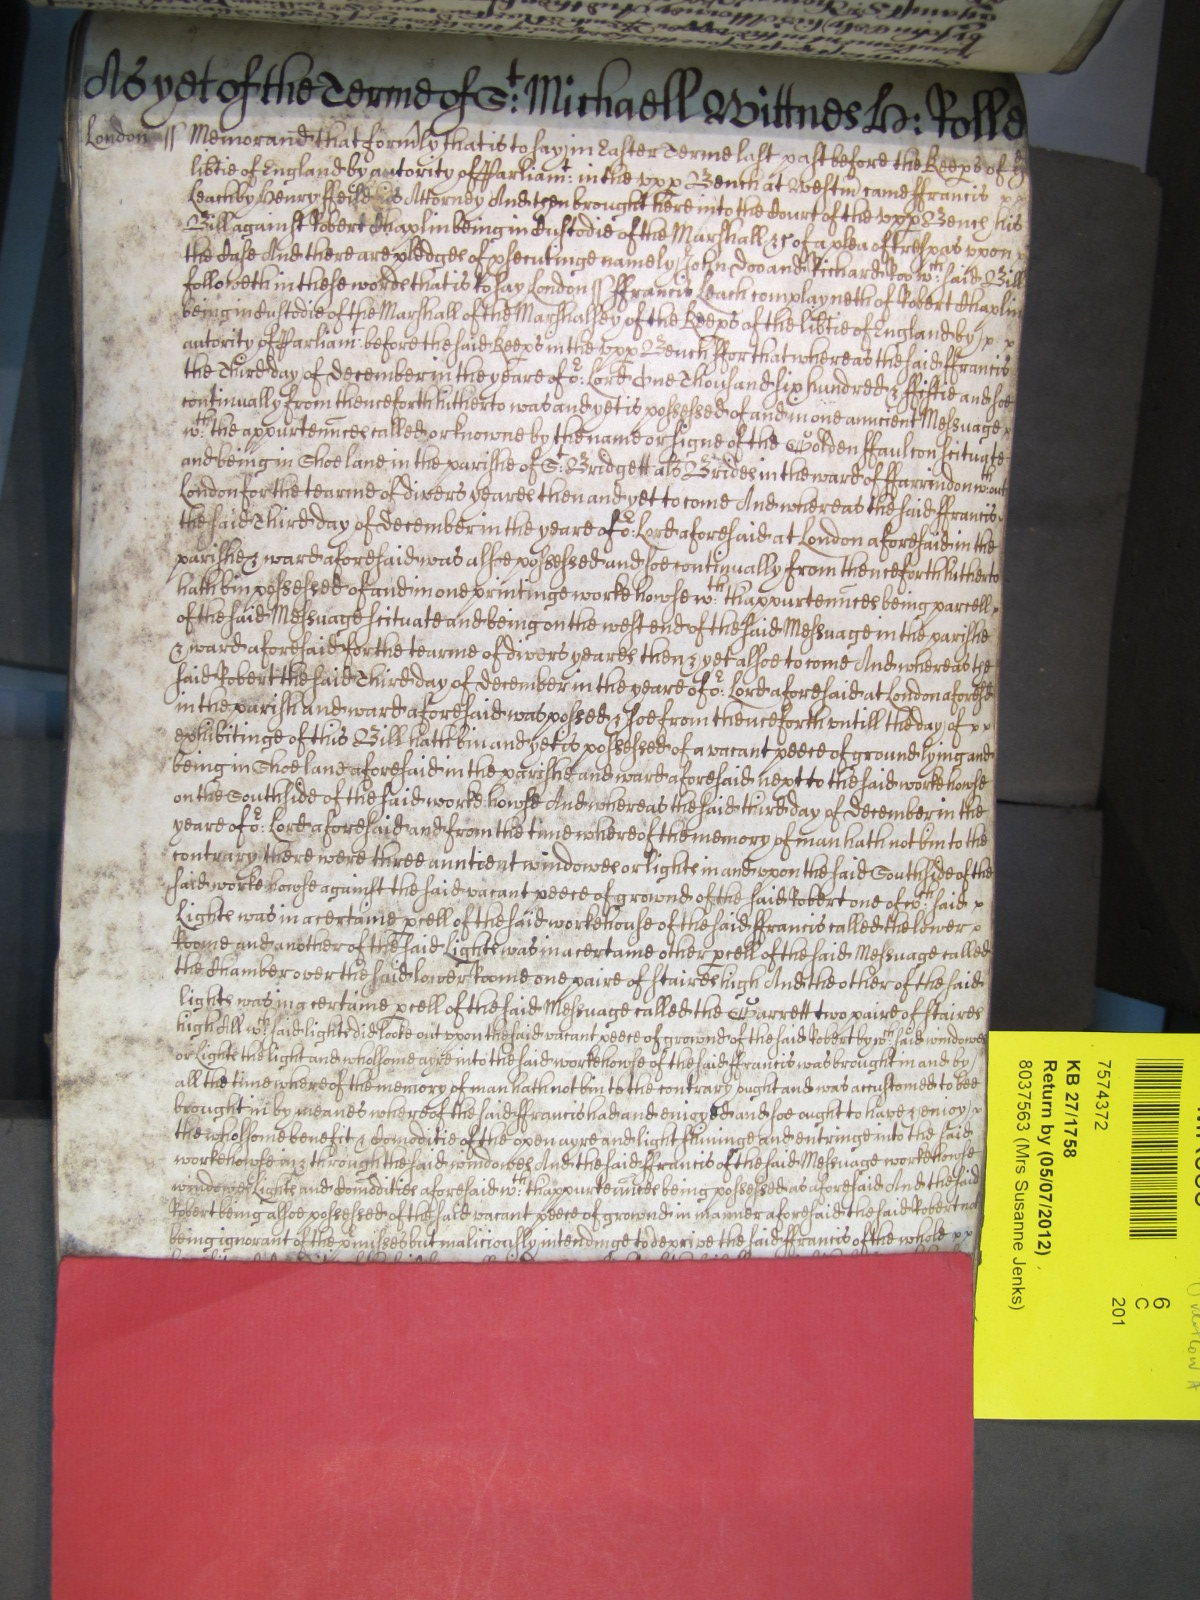 As yet of the Terme of St: Michaell Wittnes H: Rolle
London ss Memorand that formly that is to say in Easter Terme last past before the Keeps of ye
libtie of England by autority of Parliamt: in the vpp Bench at Westm came ffrancis
Leach by Henry his Attorney And then brought here into the Court of the vpp Bench his
Bill against Robert Chaplin being in Custodie of the Marshall &c of a plea of trespas vpon
the Case And there are pledges of psecutinge namely John Doo and Richard Roo wch: said Bill
followeth in these words that is to say London ss ffrancis Leach complayneth of Robert Chaplin
being in Custodie of the Marshall of the Marshalsey of the Keeps of the libtie of England by
autority of Parliamt: before the said Keeps in the vpp Bench ffor that whereas the said ffrancis
the Third day of December in the yeare of or: Lord One Thousand six hundred & fiftie and soe
continually from thenceforth hitherto was and yet is possessed of and in one anncient Messuage
wth: the appurtennces called or knowne by the name or signe of the Golden ffaulcon scituate
and being in Shoe lane in the parishe of St: Bridgett als Brides in the ward of ffarrindon wthout
London for the tearme of divers yeares then and yet to come And whereas the said ffrancis
the said Third day of December in the yeare of or: Lord aforesaid at London aforesaid in the
parishe & ward aforesaid was alsoe possessed and soe continually from thenceforth hitherto
hath bin possessed of and in one printinge worke howse wth: thappurtennces being parcell
of the said Messuage scituate and being on the west end of the said Messuage in the parishe
& ward aforesaid for the tearme of divers yeares then & yet alsoe to come And whereas the
said Robert the said Third day of December in the yeare of or: Lord aforesaid at London aforesd
in the parish and ward aforesaid was possed & soe from thenceforth vntill the day of
exhibitinge of this Bill hath bin and yet is possessed of a vacant peece of ground lying and
being in Shoe land aforesaid in the parishe and ward aforesaid next to the said worke howse
on the South side of the said worke howse And whereas the said third day of December in the
yeare of or: Lord aforesaid and from the time whereof the memory of man hath not bin to the
contrary there were three anntient windowes or lights in and vpon the said South side of the
said worke howse against the said vacant peece of grownd of the said Robert one of wch: said
Lights was in a certaine pcell of the said workehouse of the said ffrancis called the lower
Roome and another of the said Lights was in a certaine other pcell of the said Messuage called
the Chamber over the said lower Roome one paire of staires high And the other of the said
lights was in a certaine pcell of the said Messuage called the Garrett two paire of staires
high All wch said lights did looke out vpon the said vacant peece of grownd of the said Robert by wch: said windowes
or lights the light and wholsome ayre into the said workehowse of the said ffrancis was brought in and by
all the time whereof the memory of man hath not bin to the contrary ought and was accustomed to bee
brought in by meanes whereof the said ffrancis had and enioyed and soe ought to have & enioy
the wholsome benefitt & Comoditie of the open ayre and light shininge and entringe into the said
workehowse in & through the said windowes And the said ffrancis of the said Messuage workehowse
windowes Lights and Comodities aforesaid wth: thappurtennces being possessed as aforesaid And the said
Robert being alsoe possessed of the said vacant peece of grownd in manner aforesaid the said Robert not
being ignorant of the pmisses but maliciously intendinge to deprive the said ffrancis of the whole
7574372
KB 27/1758
Return by (05/07/2012)
8037563 (Mrs Susanne Jenks)
6
C
201